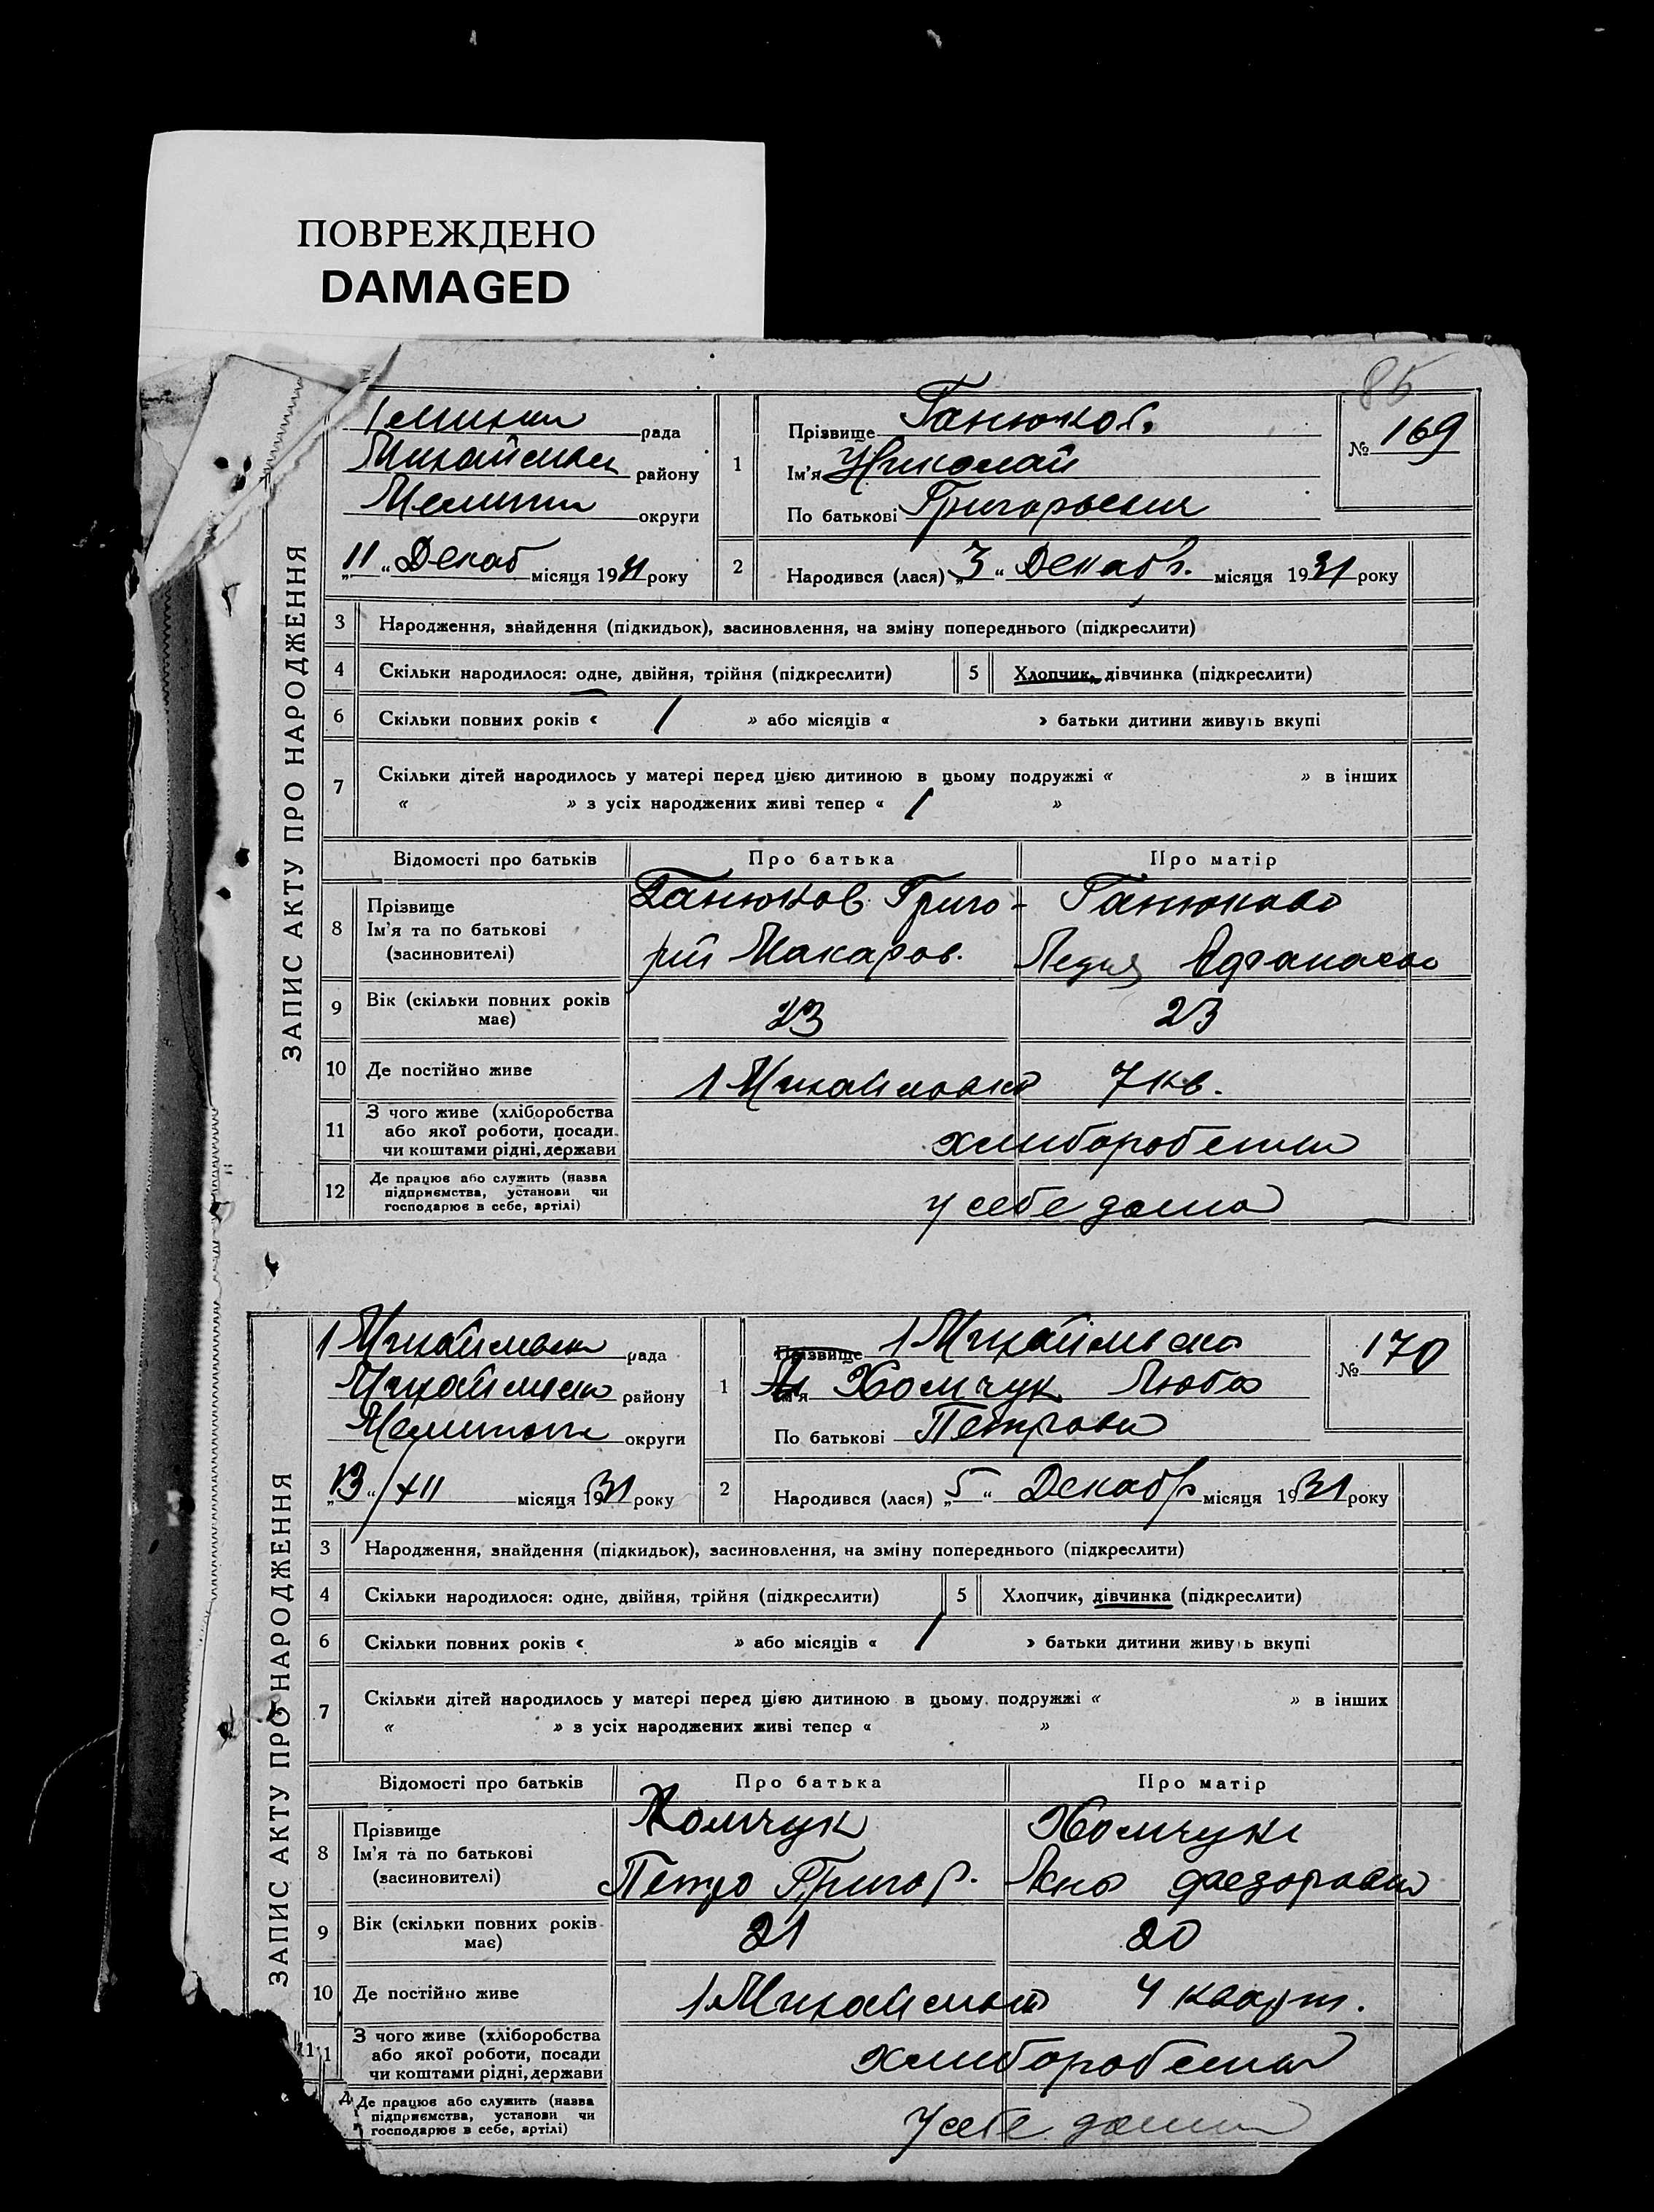 ПОВРЕЖДЕНО
DAMAGED
85
ЗАПИС АКТУ ПРО НАРОДЖЕННЯ
рада
району
округи
"11" Декаб місяця 1931 року
№ 169
1
Прізвище Ганюков.
Ім'я Николай
По батькові Григорьевич
2
Народився (лася) „3“ Декабр. місяця 1931 року
3 Народження, знайдення (підкидьок), засиновлення, на зміну попереднього (підкреслити)
4 Скільки народилося: одне, двійня, трійня (підкреслити)
5 Хлопчик, дівчинка (підкреслити)
6 Скільки повних років « 1 » або місяців « » батьки дитини живуть вкупі
7 Скільки дітей народилось у матері перед цією дитиною в цьому подружжі « » в інших
« » з усіх народжених живі тепер « 1 »
Відомості про батьків Про батька Про матір
8 Прізвище
Ім'я та по батькові
(засновителі)
Ганюков Григо-
рій Макаров.
Ганюкова
9 Вік (скільки повних років
має)
23 23
10 Де постійно живе
7 кв.
11 З чого живе (хліборобства
або якої роботи, посади
чи коштами рідні, держави
12 Де працює або служить (назва
підприємства, установи чи
господарює в себе, артілі)
у себе дома
ЗАПИС АКТУ ПРО НАРОДЖЕННЯ
рада
району
округи
"13" /XII місяця 1931 року
№ 170
1
Прізвище
Ім'я Хомчук Люба
По батькові Петрова
2
Народився (лася) „5“ Декабр місяця 1931 року
3 Народження, знайдення (підкидьок), засиновлення, на зміну попереднього (підкреслити)
4 Скільки народилося: одне, двійня, трійня (підкреслити)
5 Хлопчик, дівчинка (підкреслити)
6 Скільки повних років « » або місяців « 1 » батьки дитини живуть вкупі
7 Скільки дітей народилось у матері перед цією дитиною в цьому подружжі « » в інших
« » з усіх народжених живі тепер « »
Відомості про батьків Про батька Про матір
8 Прізвище
Ім'я та по батькові
(засиновителі)
Хомчук
Петро Григор.
Хомчук
9 Вік (скільки повних років
має)
21 20
10 Де постійно живе
4 кварт.
11 З чого живе (хліборобства
або якої роботи, посади
чи коштами рідні, держави
Де працює або служить (назва
підприємства, установи чи
господарює в себе, артілі)
у себе дома